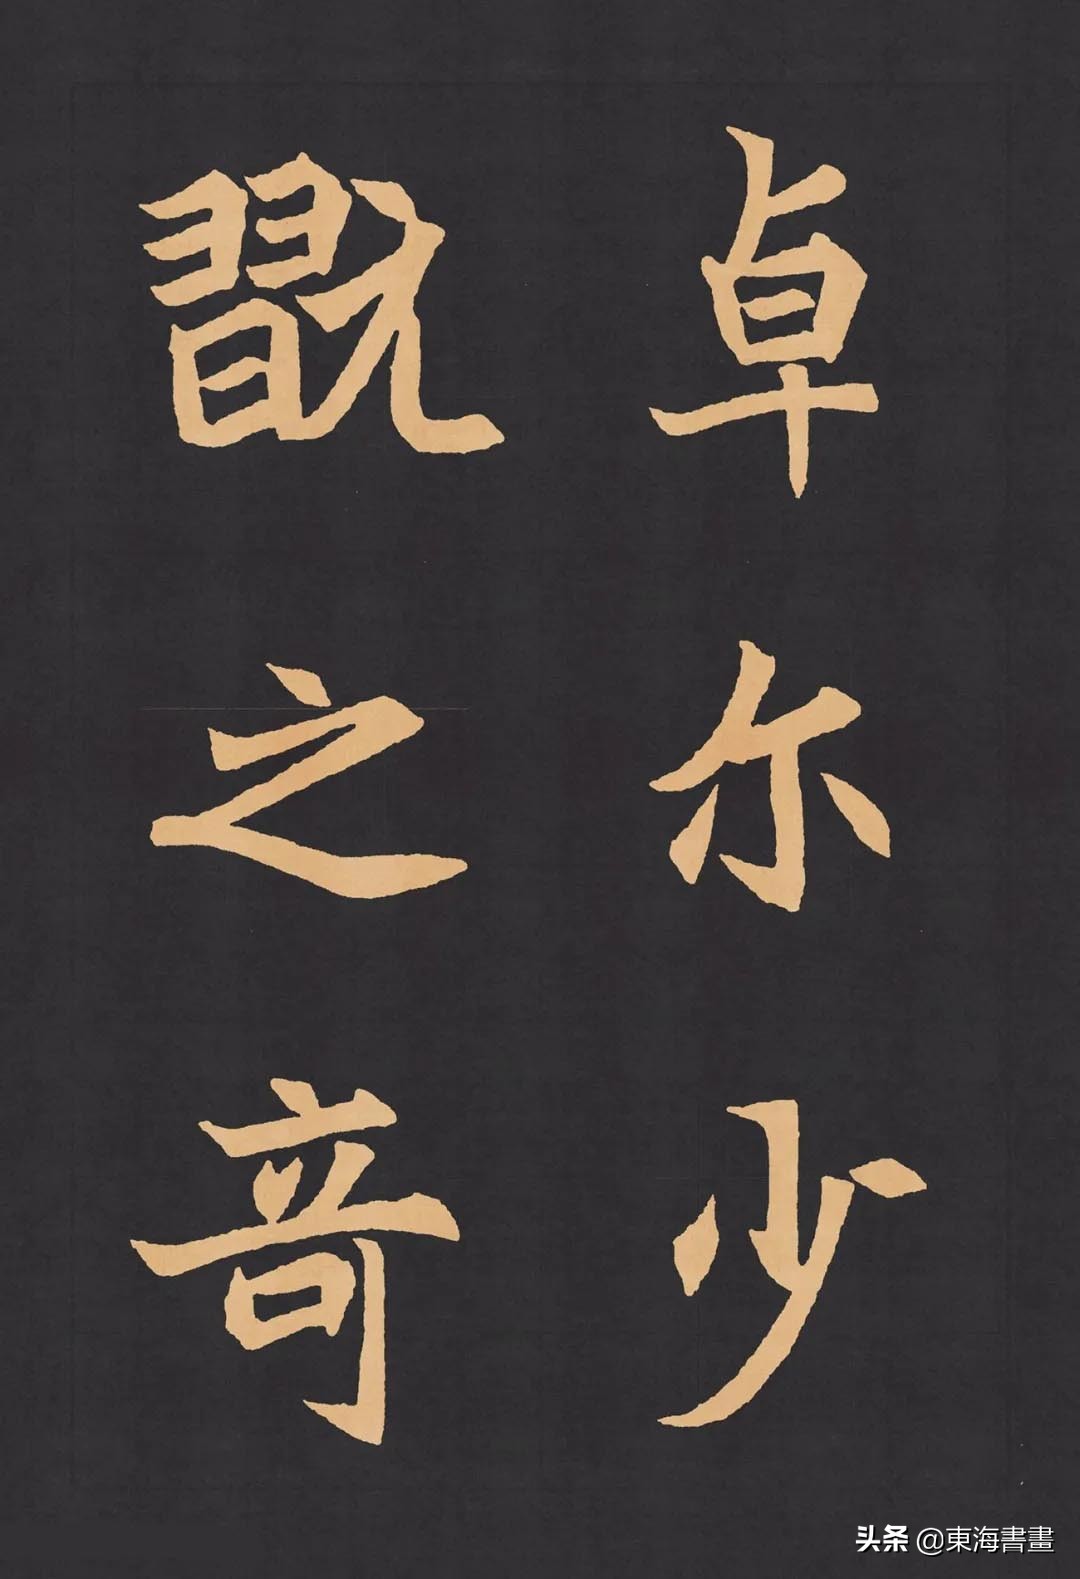 卓尔少
翫之竒
头条 @東海書畫